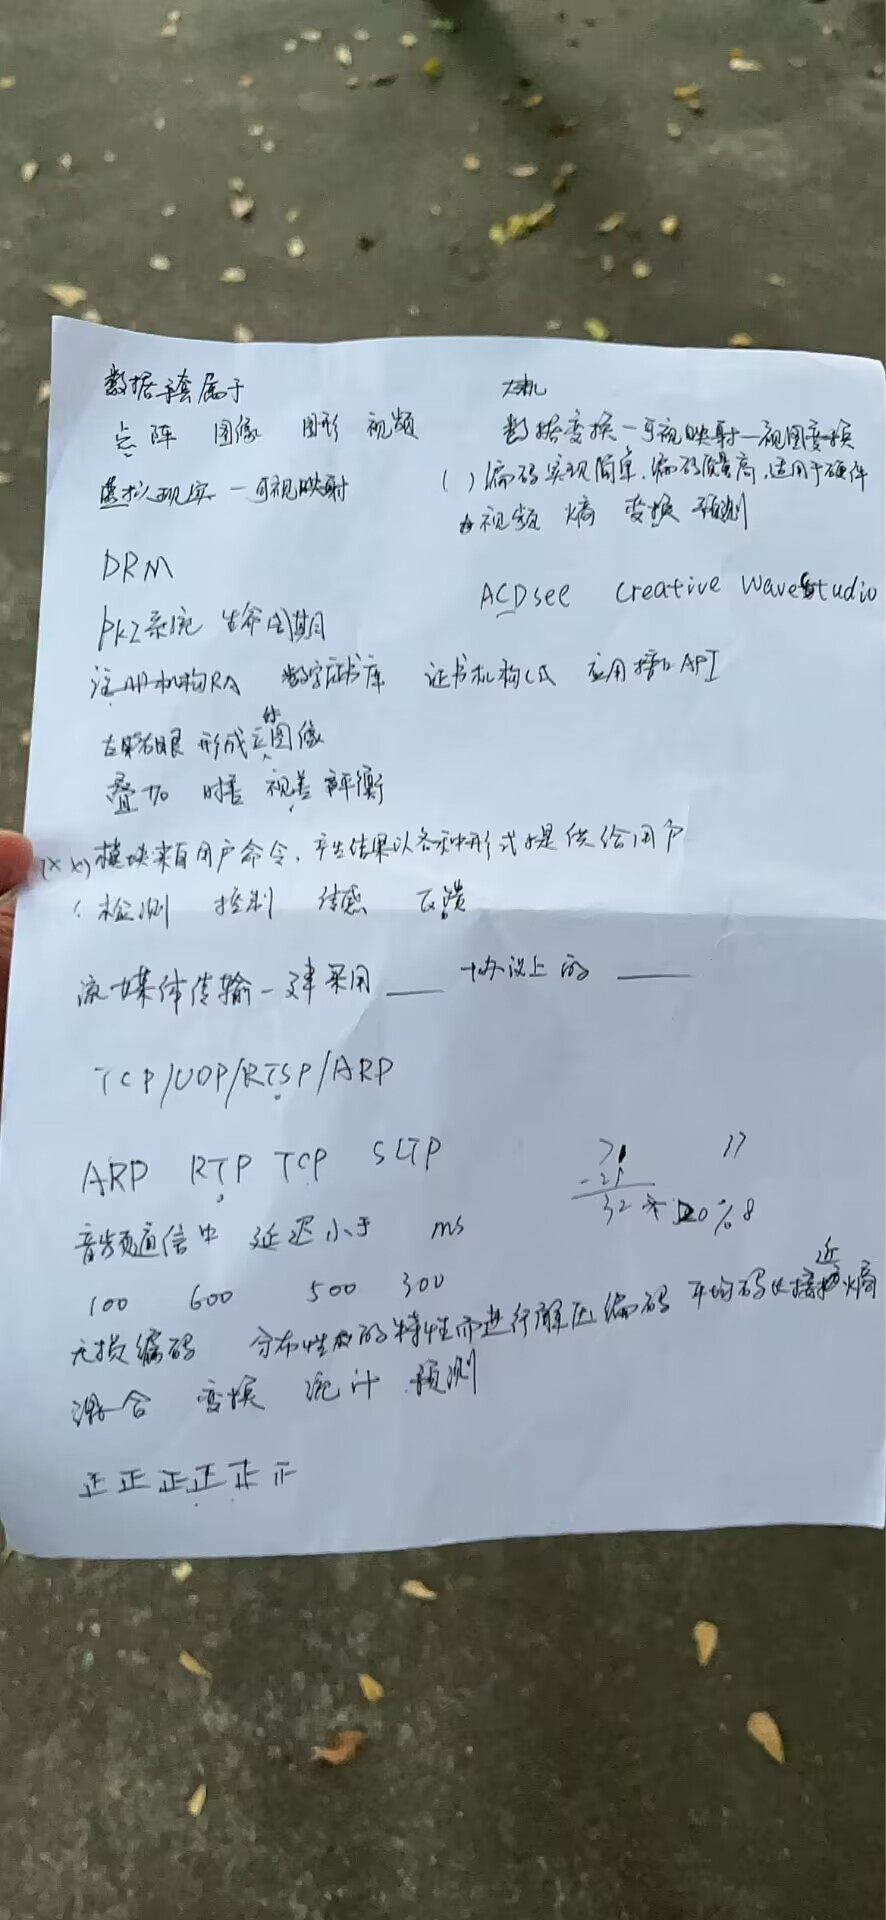 数据手套属于
点阵 图像 图形 视频
虚拟现实 一可视映射
大机
数据变换一可视映射一视图变换
( ) 编码实现简单、编码质量高,适用于硬件
视频 熵 变换 预测
DRM
ACDsee Creative WaveStudio
PKI系统 生命周期
注册机构RA 数字证书库 证书机构CA 应用接口API
左眼右眼 形成立体图像
叠加 时差 视差 平衡
(××)模块来自用户命令,产生结果以各种形式提供给用户
( 检测 控制 传感 反馈
流媒体传输一 采用 ____ 协议上的 ____
TCP/UDP/RTSP/ARP
ARP RTP TCP SLTP
音频通信中 延迟小于 ms
100 600 500 300
无损编码 分布性 的特性而进行解压编码 平均码长接近熵
混合 变换 统计 预测
正正正正正正